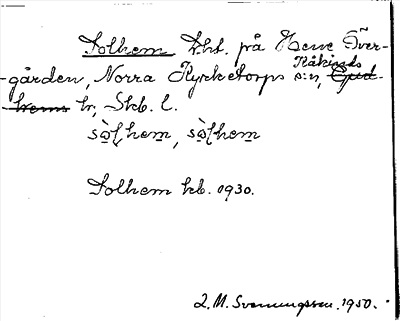 Solhem Lht. på Hene Över-
gården, Norra Kyrketorps s:n, Kåkinds
hr, Skb. l.
sò̤l,hem, sò̤lhem
Solhem kb. 1930.
L. M. Svenungsson. 1950.